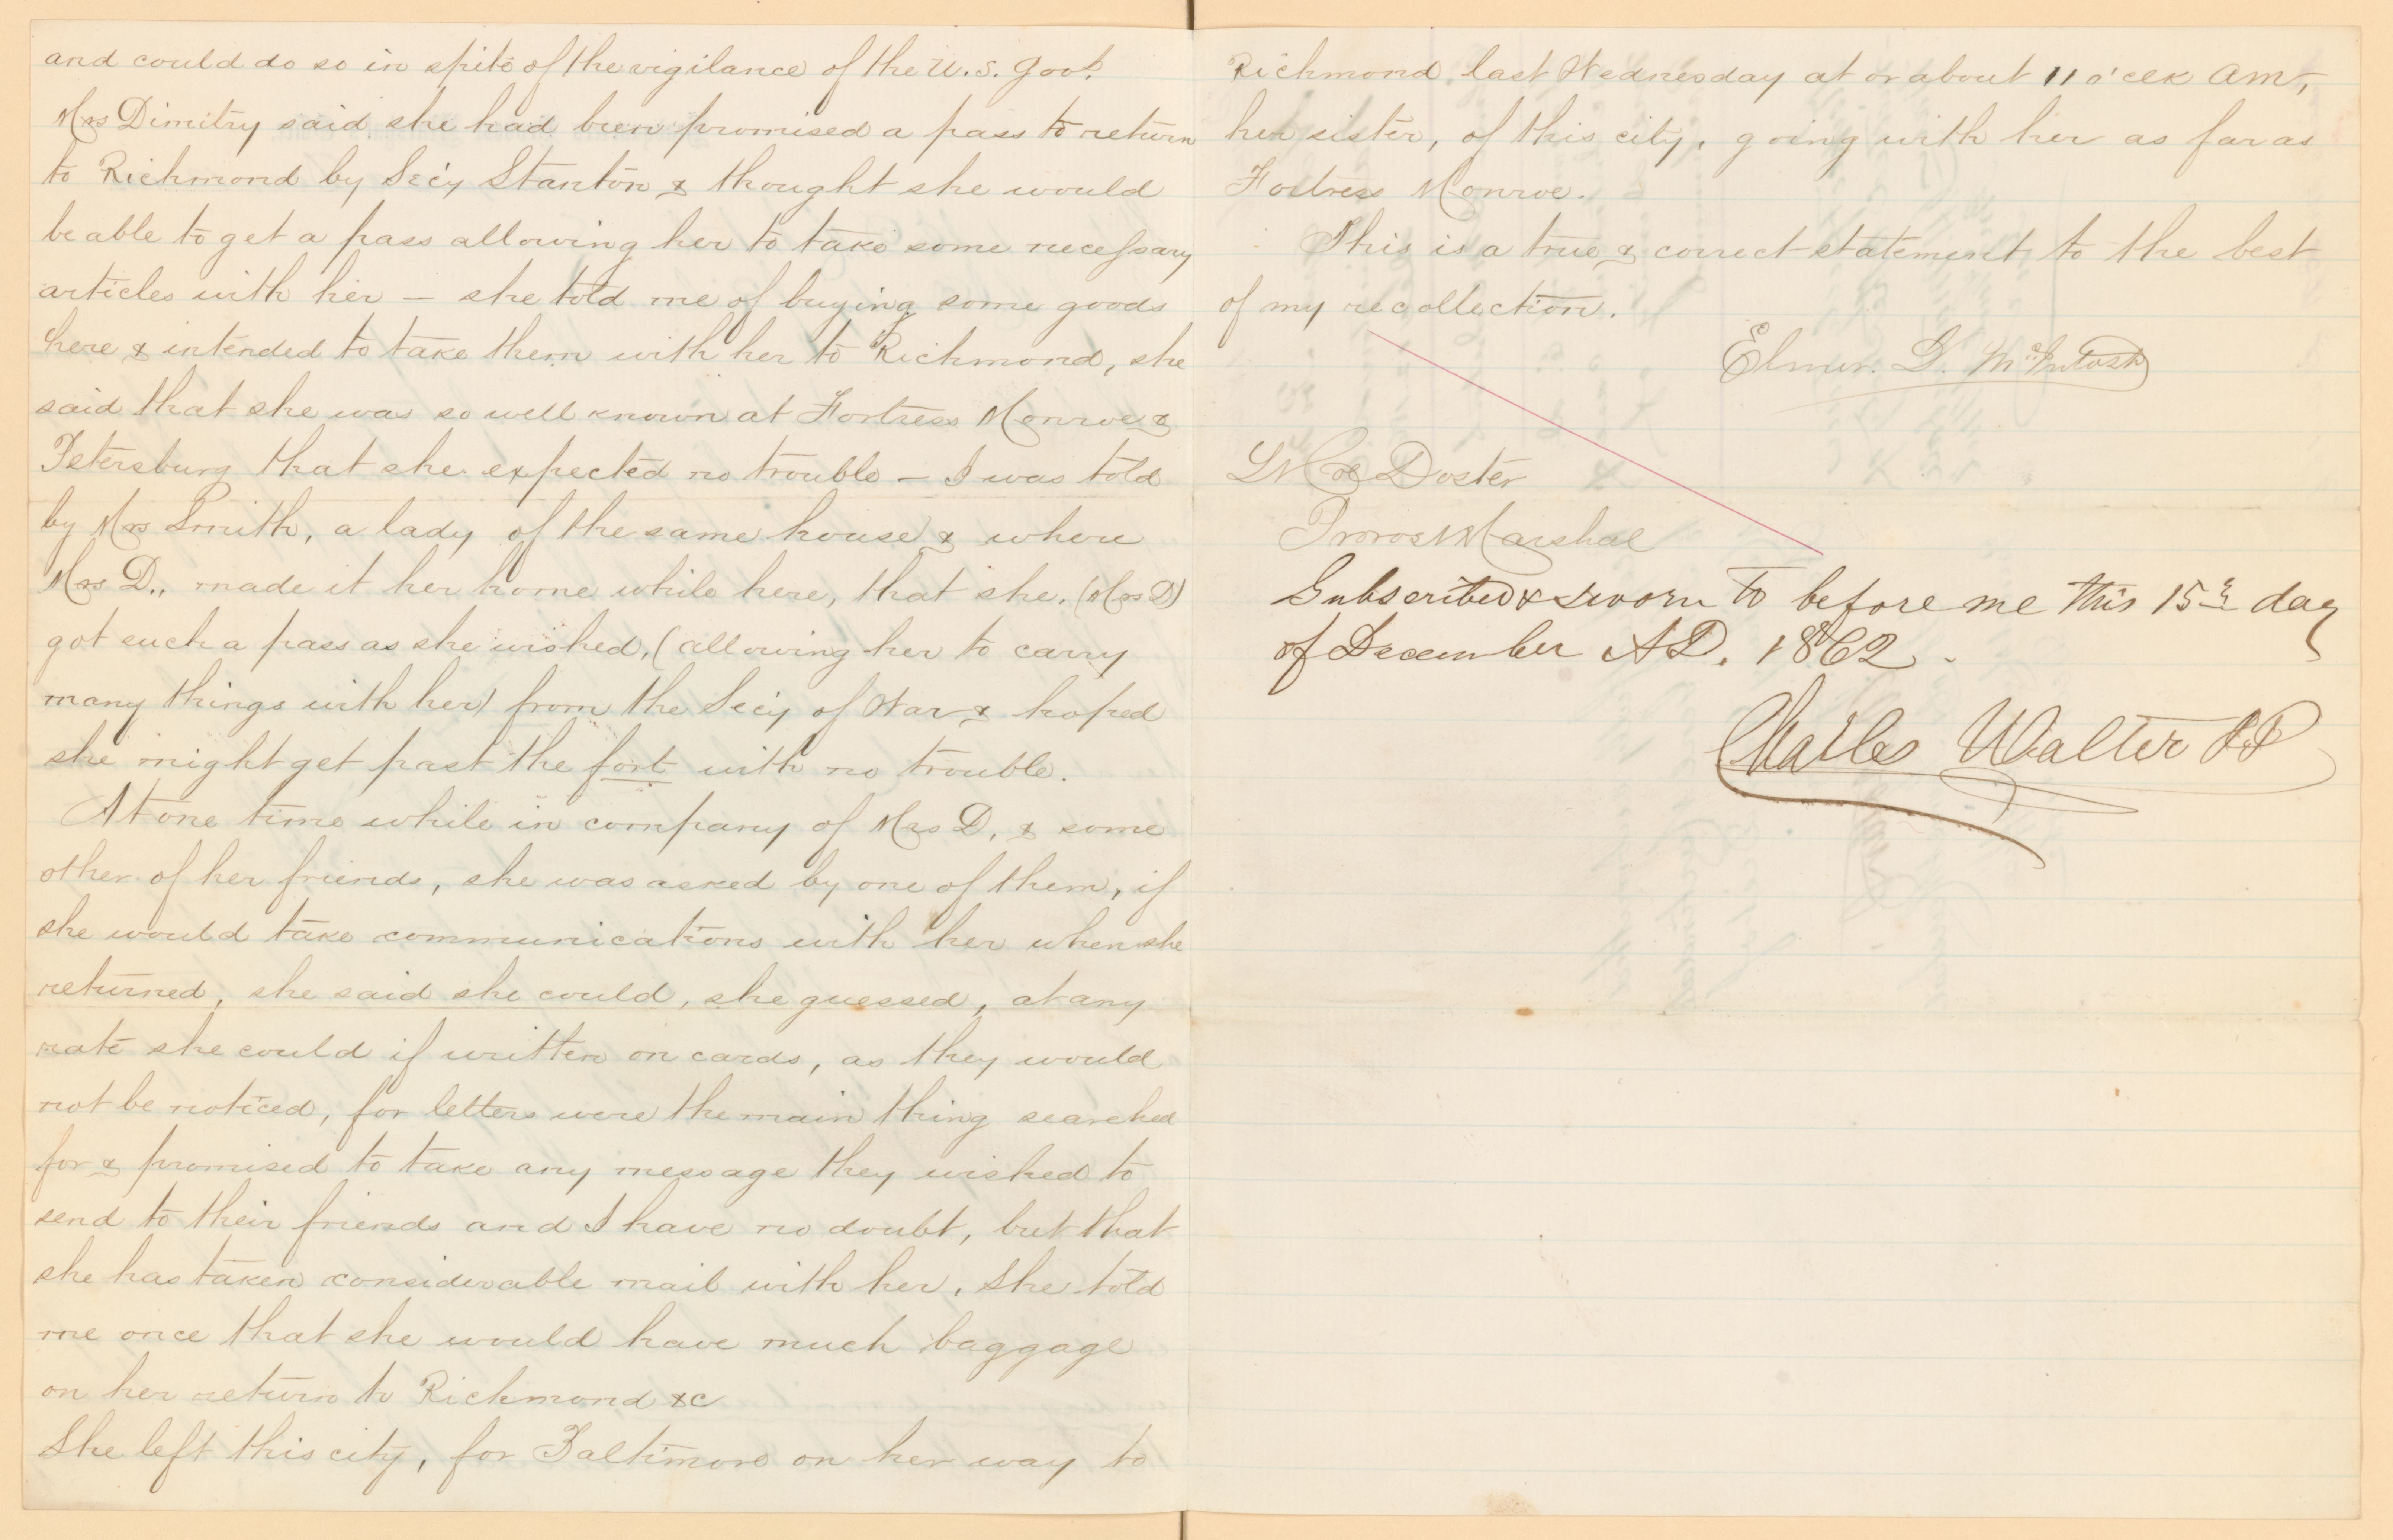 and could do so in spite of the vigilance of the U.S. Govt.
Mrs Dimitry said she had been promised a pass to return
to Richmond by Secy Stanton & thought she would
be able to get a pass allowing her to take some necessary
articles with her — she told me of buying some goods
here & intended to take them with her to Richmond, she
said that she was so well known at Fortress Monroe &
Petersburg that she expected no trouble — I was told
by Mrs Smith, a lady of the same house & where
Mrs D., made it her home while here, that she, (Mrs D)
got such a pass as she wished, (allowing her to carry
many things with her) from the Secy of War & hoped
she might get past the fort with no trouble.
At one time while in company of Mrs D, & some
other of her friends, she was asked by one of them, if
she would take communications with her when she
returned, she said she could, she guessed, at any
rate she could if written on cards, as they would
not be noticed, for letters were the main thing searched
for & promised to take any message they wished to
send to their friends and I have no doubt, but that
she has taken considerable mail with her, She told
me once that she would have much baggage
on her return to Richmond &c
She left this city, for Baltimore on her way to
Richmond last Wednesday at or about 11 o'clk AM,
her sister, of this city, going with her as far as
Fortress Monroe.
This is a true & correct statement to the best
of my recollection.
Elmer. G. McIntosh
Doster
Provost Marshal
Subscribed & sworn to before me this 15th day
of December AD. 1862.
Charles Walter J.P.